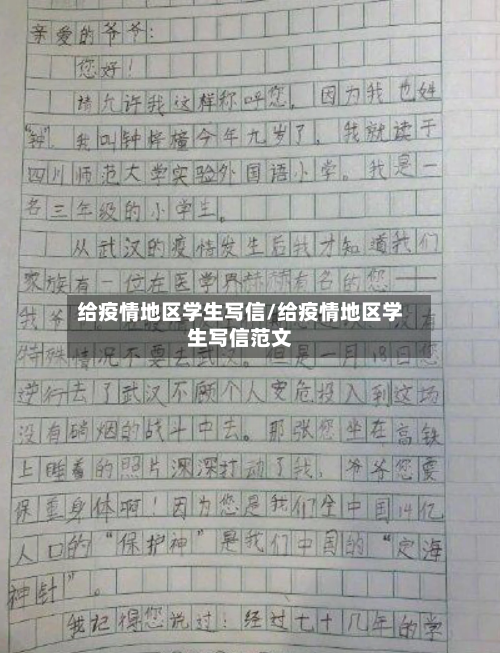 亲爱的爷爷:
您好!
请允许我这样称呼您,因为我也姓
“钟”。我叫钟梓橦今年九岁了,我就读于
四川师范大学实验外国语小学。我是一
名三年级的小学生。
从武汉的疫情发生后我才知道我们
家族有一位在医学界赫赫有名的您——
给疫情地区学生写信/给疫情地区学
生写信范文
特殊情况不要去武汉。但是一月18日您
逆行去了武汉不顾个人安危投入到这场
没有硝烟的战斗中去。那张您坐在高铁
上睡着的照片深深打动了我,爷爷您要
保重身体啊!因为您是我们全中国14亿
人口的“保护神”是我们中国的“定海
神针”。
我记得您说过:经过七十几年的学